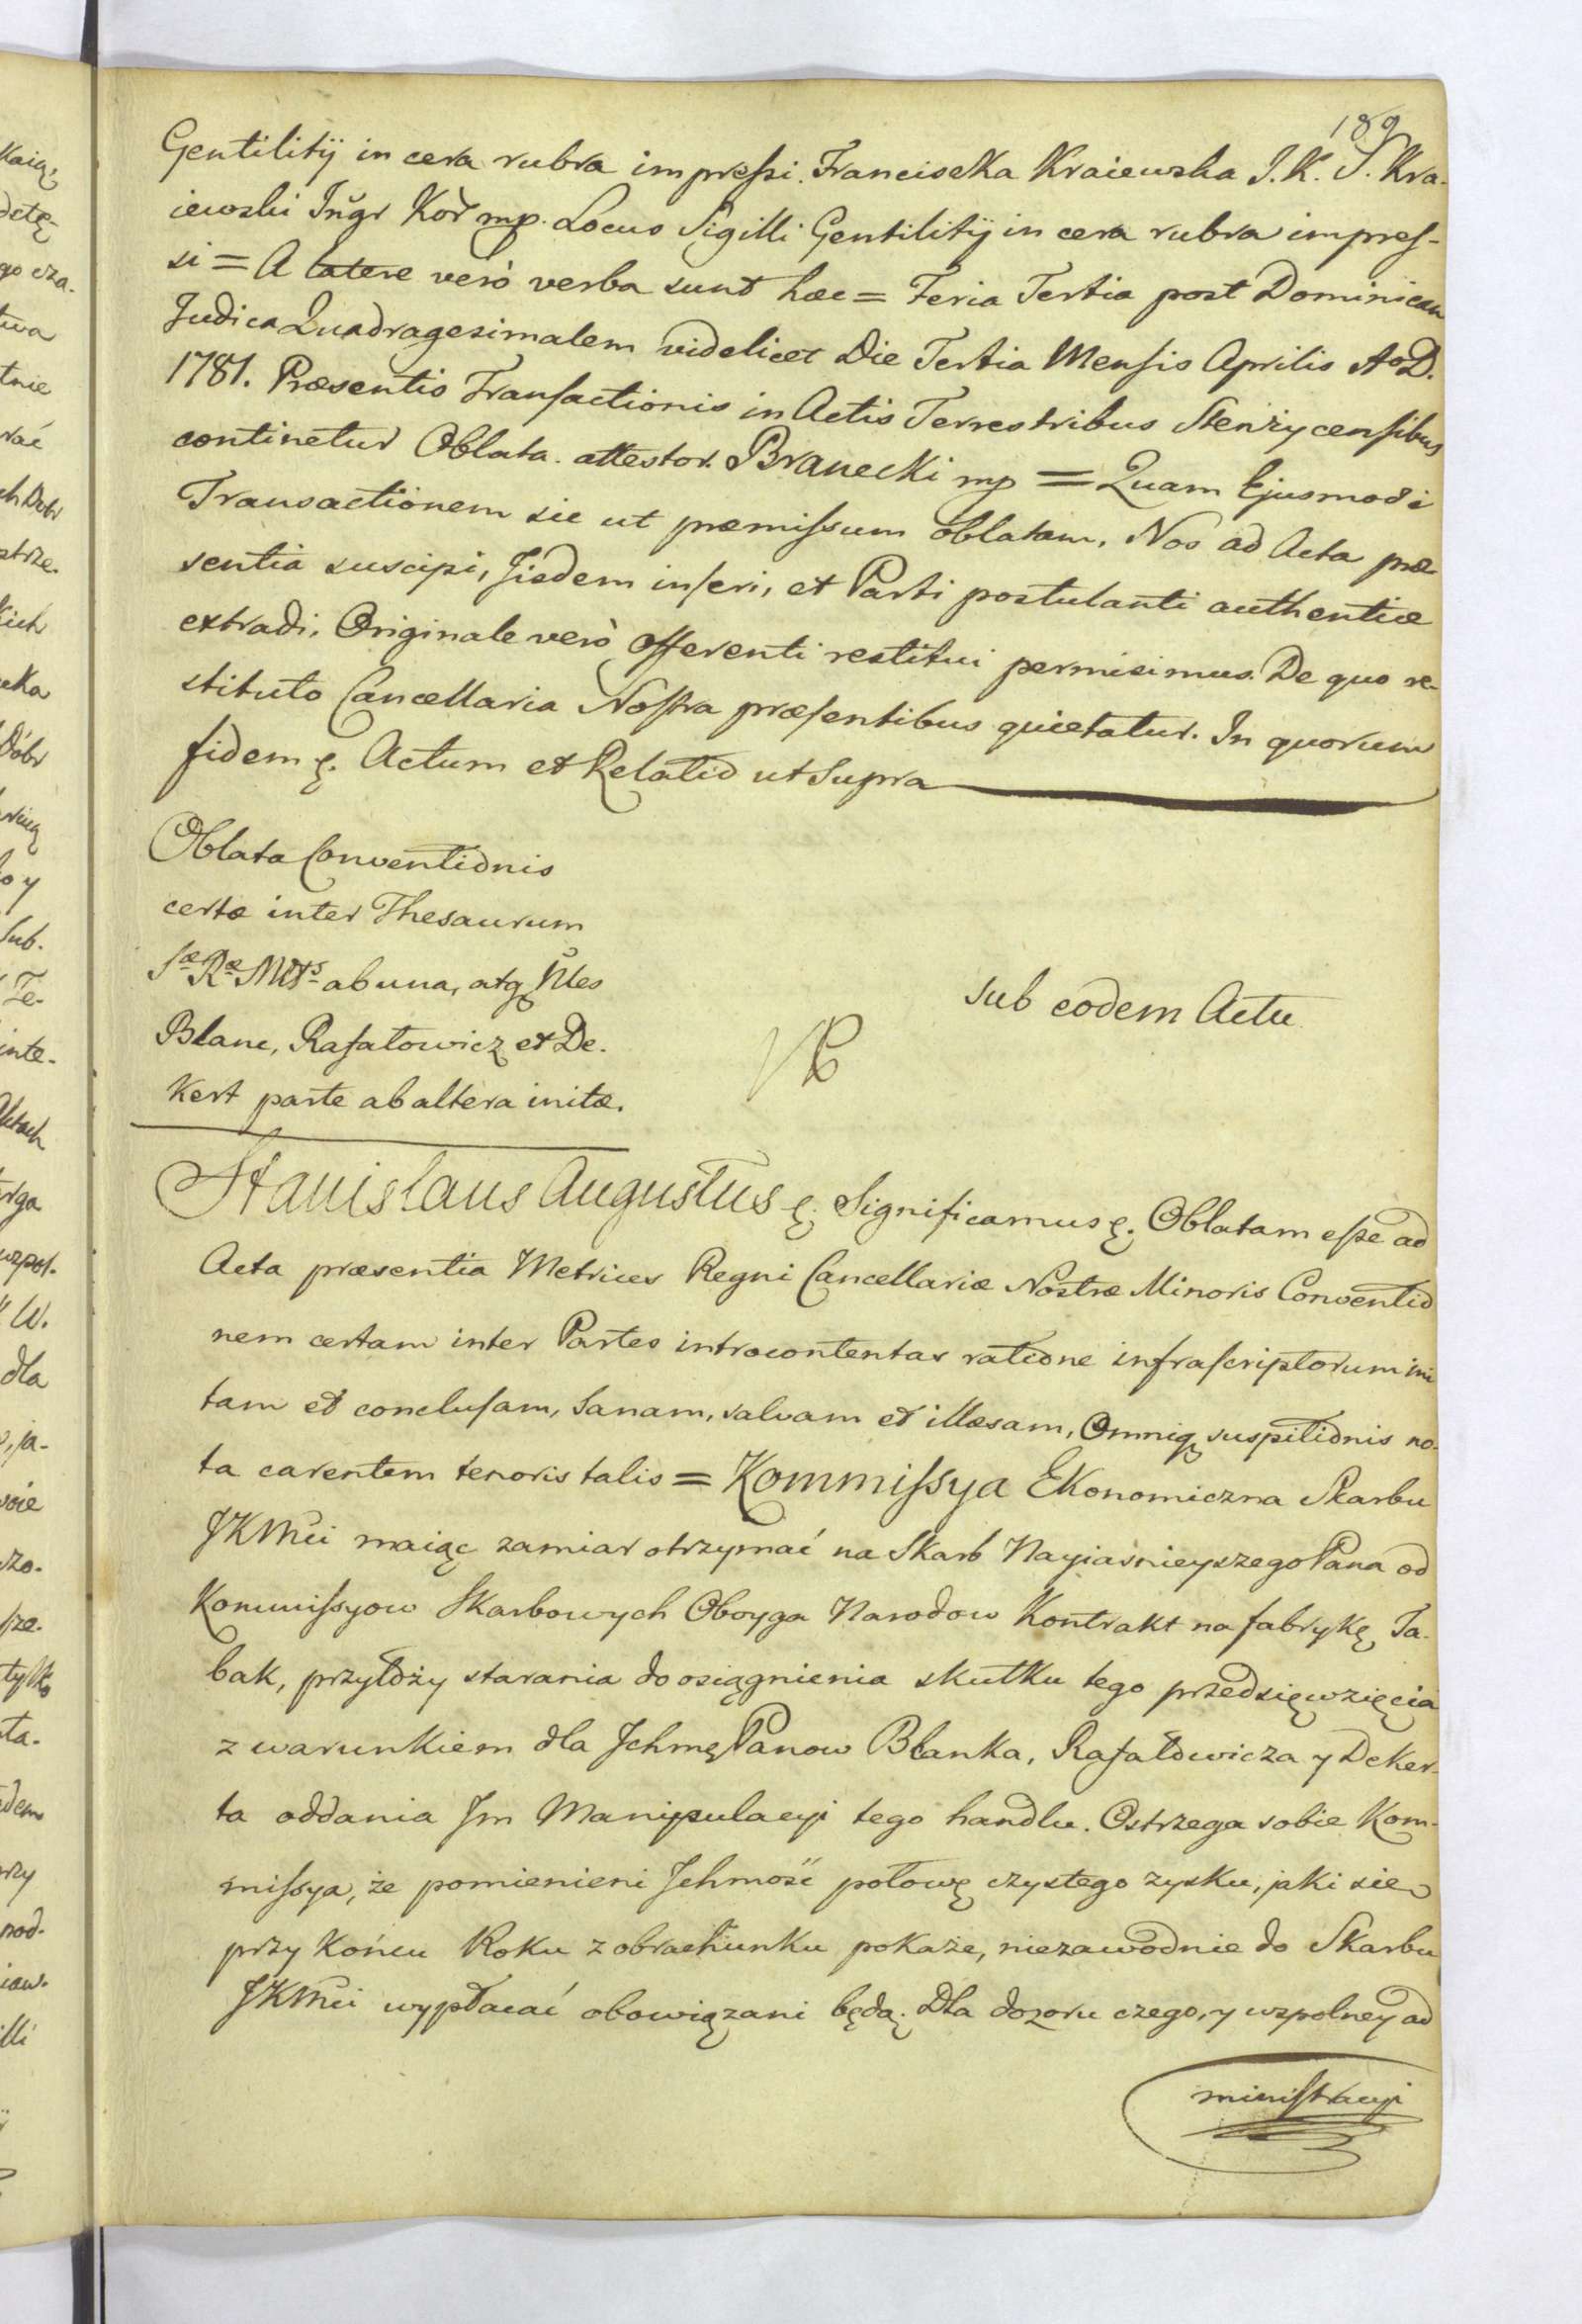 189
Gentilitÿ in cera rubra impreſsi. Franciszka Kraiewska J.K.S. Kra-
iewski Ingr Kor mp. Locus Sigilli Gentilitÿ in cera rubra impreſ-
si = A latere verò verba sunt hæc = Feria Tertia post Dominicam
Judica Quadragesimalem videlicet Die Tertia Menſis Aprilis AoD.
1781. Præsentis Tranſactionis in Actis Terrestribus Stenżycenſibus
continetur Oblata. attestor. Branecki mp = Quam Ejusmodi
Transactionem sic ut præmiſsum oblatam, Nos ad Acta præ
sentia suscipi, Jisdem inſeri, et Parti postulanti authentice
extradi, Originale verò Offerenti restitui permisimus. De quo re-
stituto Cancellaria Noſtra præſentibus quietatur. In quorum
fidem ę. Actum et Relatio ut Supra
Oblata Conventionis
certæ inter Thesaurum
Sæ Ræ Mtts ab una, atq Nles
Blanc, Rafałowicz et De-
kert parte ab altera initæ.
sub eodem Actu
Stanislaus Augustus ę. Significamus ę. Oblatam eſse ad
Acta præsentia Metrices Regni Cancellariæ Nostræ Minoris Conventio
nem certam inter Partes introcontentas ratione infraſcriptorum ini
tam et concluſam, Sanam, salvam et illæsam, Omniq suspitionis no-
ta carentem tenoris talis = Kommiſsya Ekonomiczna Skarbu
JKMci maiąc zamiar otrzymać na Skarb Nayiasnieyszego Pana od
Kommiſsyow Skarbowych Oboyga Narodow Kontrakt na fabrykę Ta-
bak, przyłoży starania do osiągnienia skutku tego przedsięwzięcia
z warunkiem dla Jchmę Panow Blanka, Rafałowicza y Deker-
ta oddania Jm Manipulacyi tego handlu. Ostrzega sobie Kom-
miſsya, że pomienieni Jchmość połowę czystego zysku, jaki sie
przy końcu Roku z obrachunku pokaże, niezawodnie do Skarbu
JKMci wypłacać obowiązani będą. Dla dozoru czego, y wspolney ad
miniſtracyi